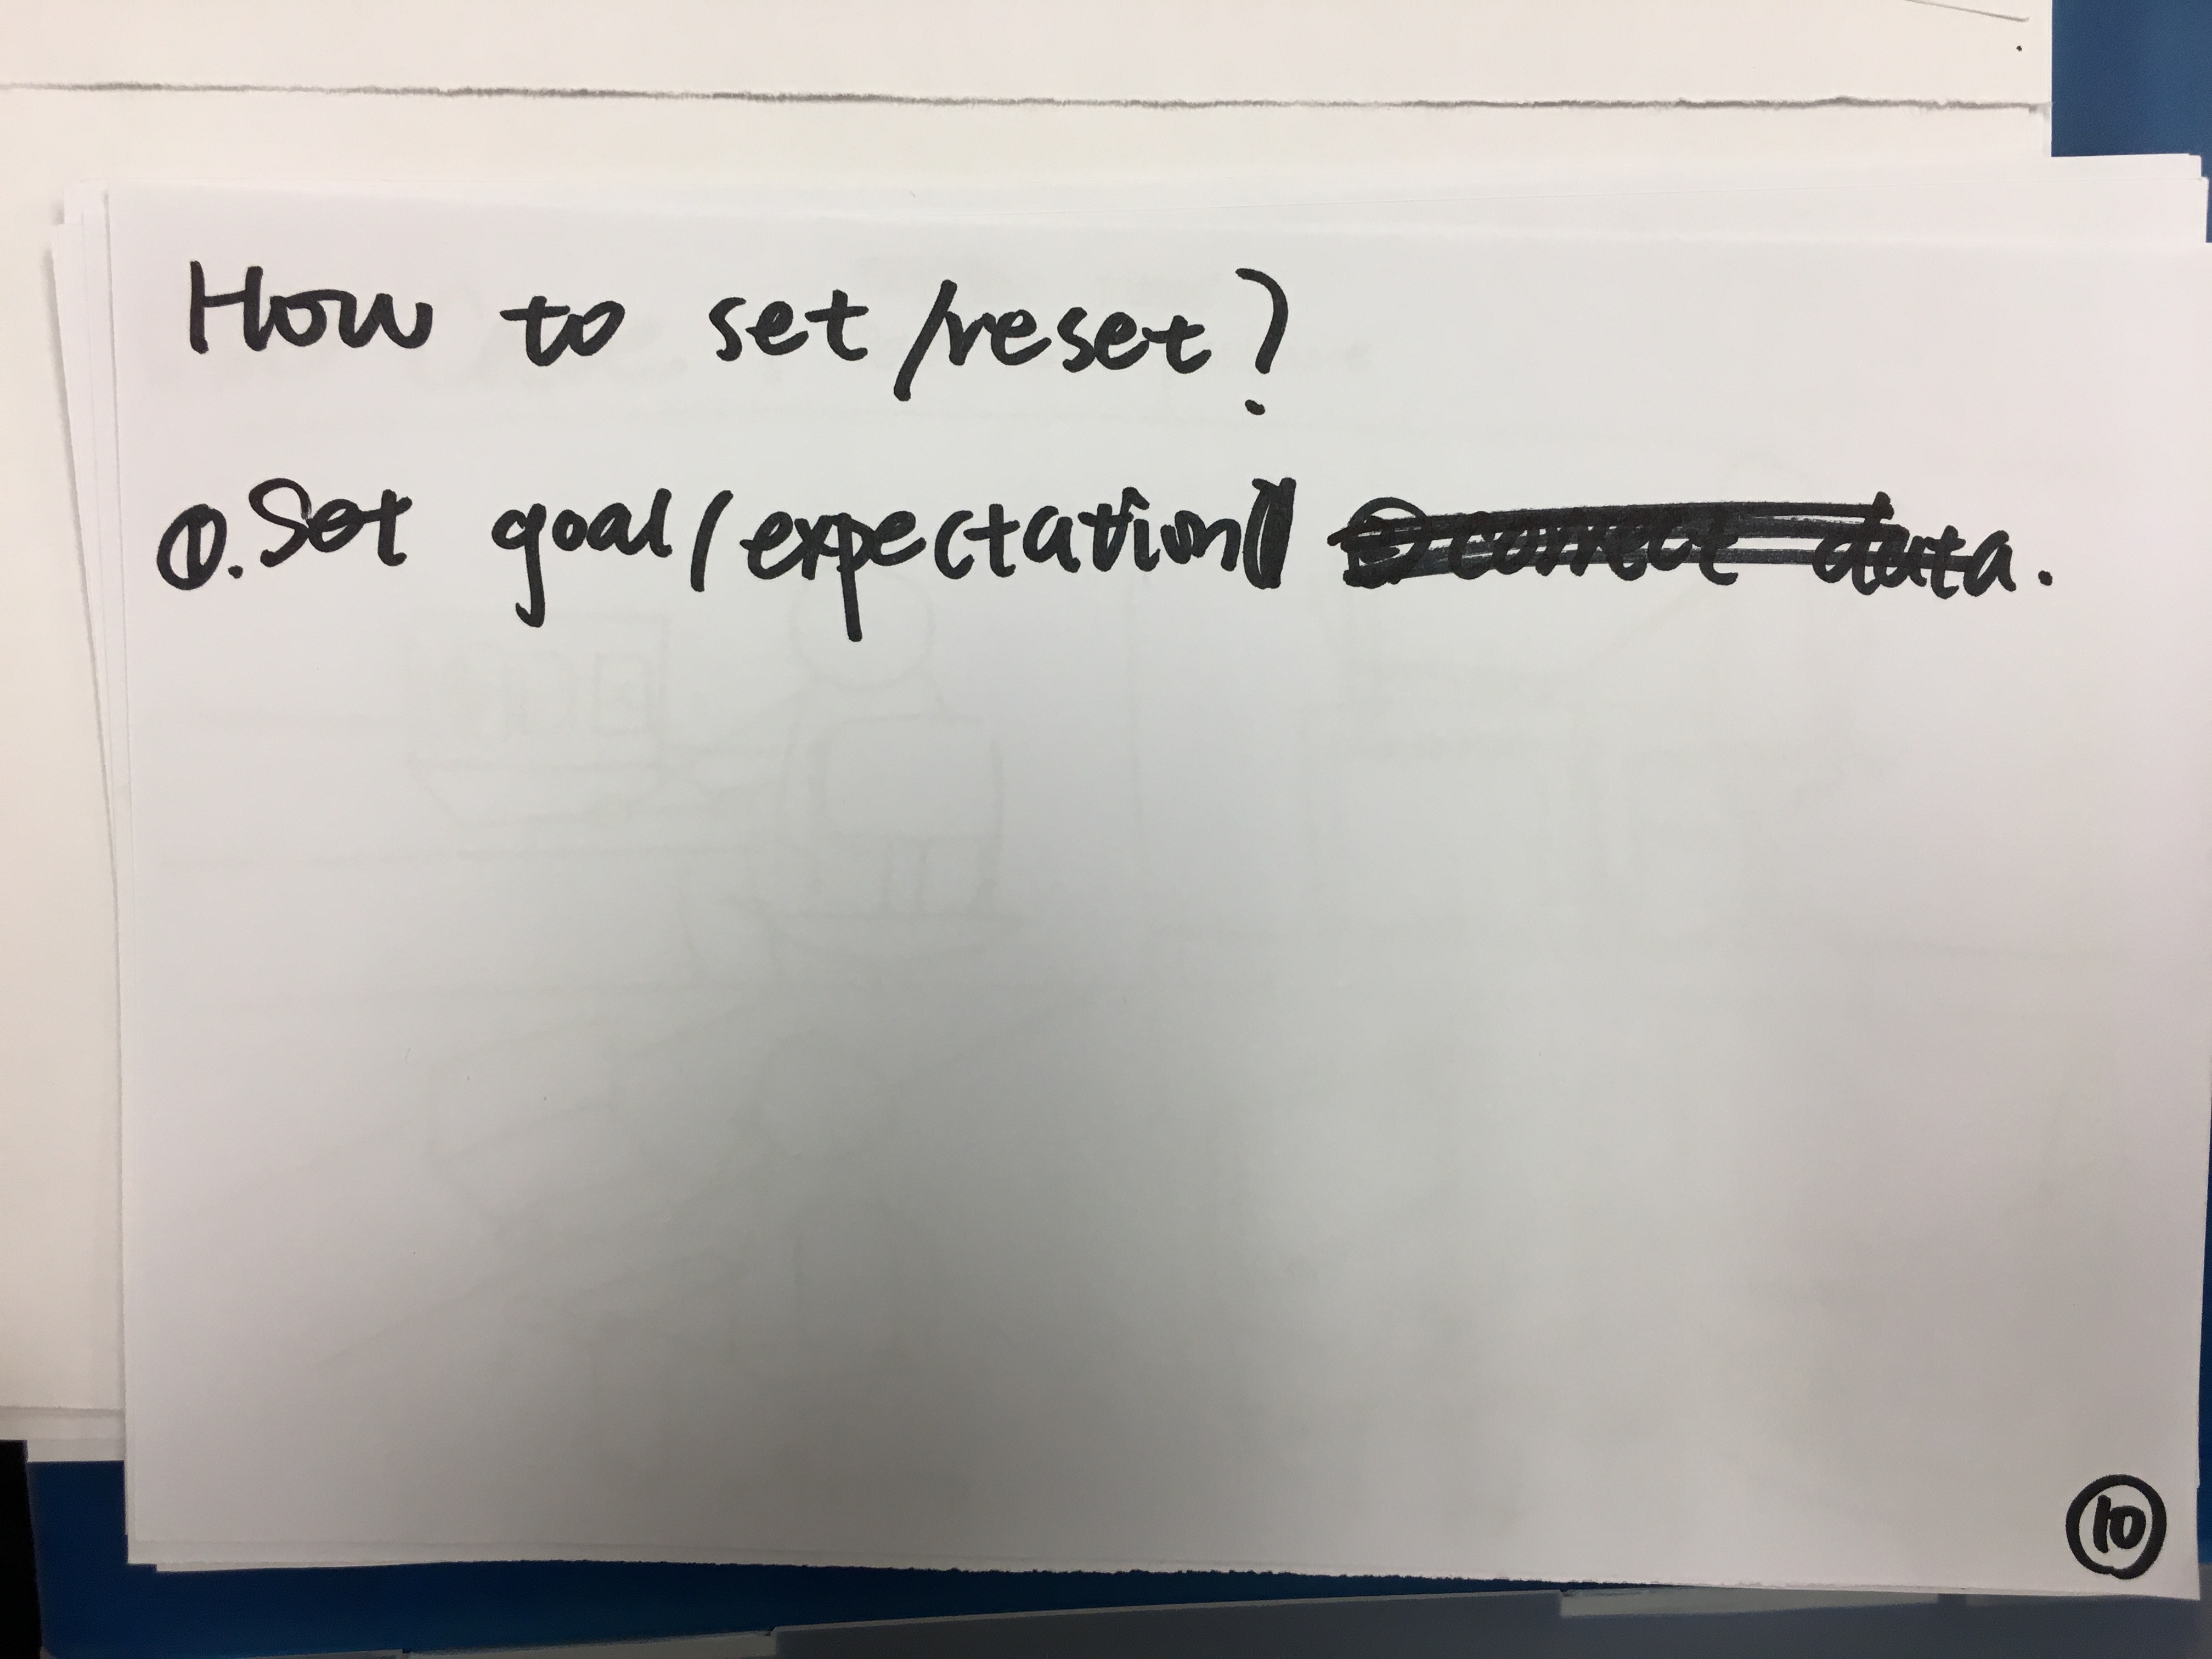 How to set/reset?
①. Set goal/expectation
⑩